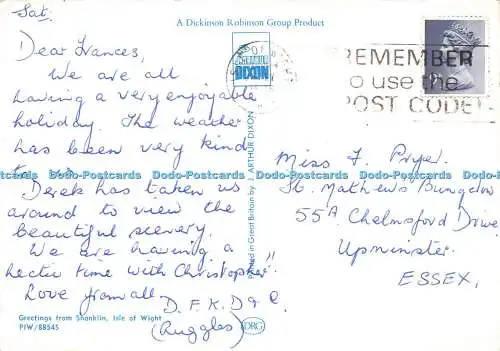 Sat.
A Dickinson Robinson Group Product
Dear Frances,
We are all
having a very enjoyable
holiday. The weather
has been very kind
to us.
Derek has taken us
around to view the
beautiful scenery.
We are having a
hectic time with Christopher"
Love from all,
D.F.K.D & C.
(Ruggles)
Greetings from Shanklin, Isle of Wight
PIW/88545
Printed in Great Britain by J. ARTHUR DIXON
DRG
ARTHUR
DIXON
REMEMBER
to use the
POST CODE
Miss F. Pryer.
St. Mathews Bungalow
55A Chelmsford Drive
Upminster.
ESSEX.
Dodo-Postcards Dodo-Postcards Dodo-Postcards Dodo-Postcards Dodo-Postcards